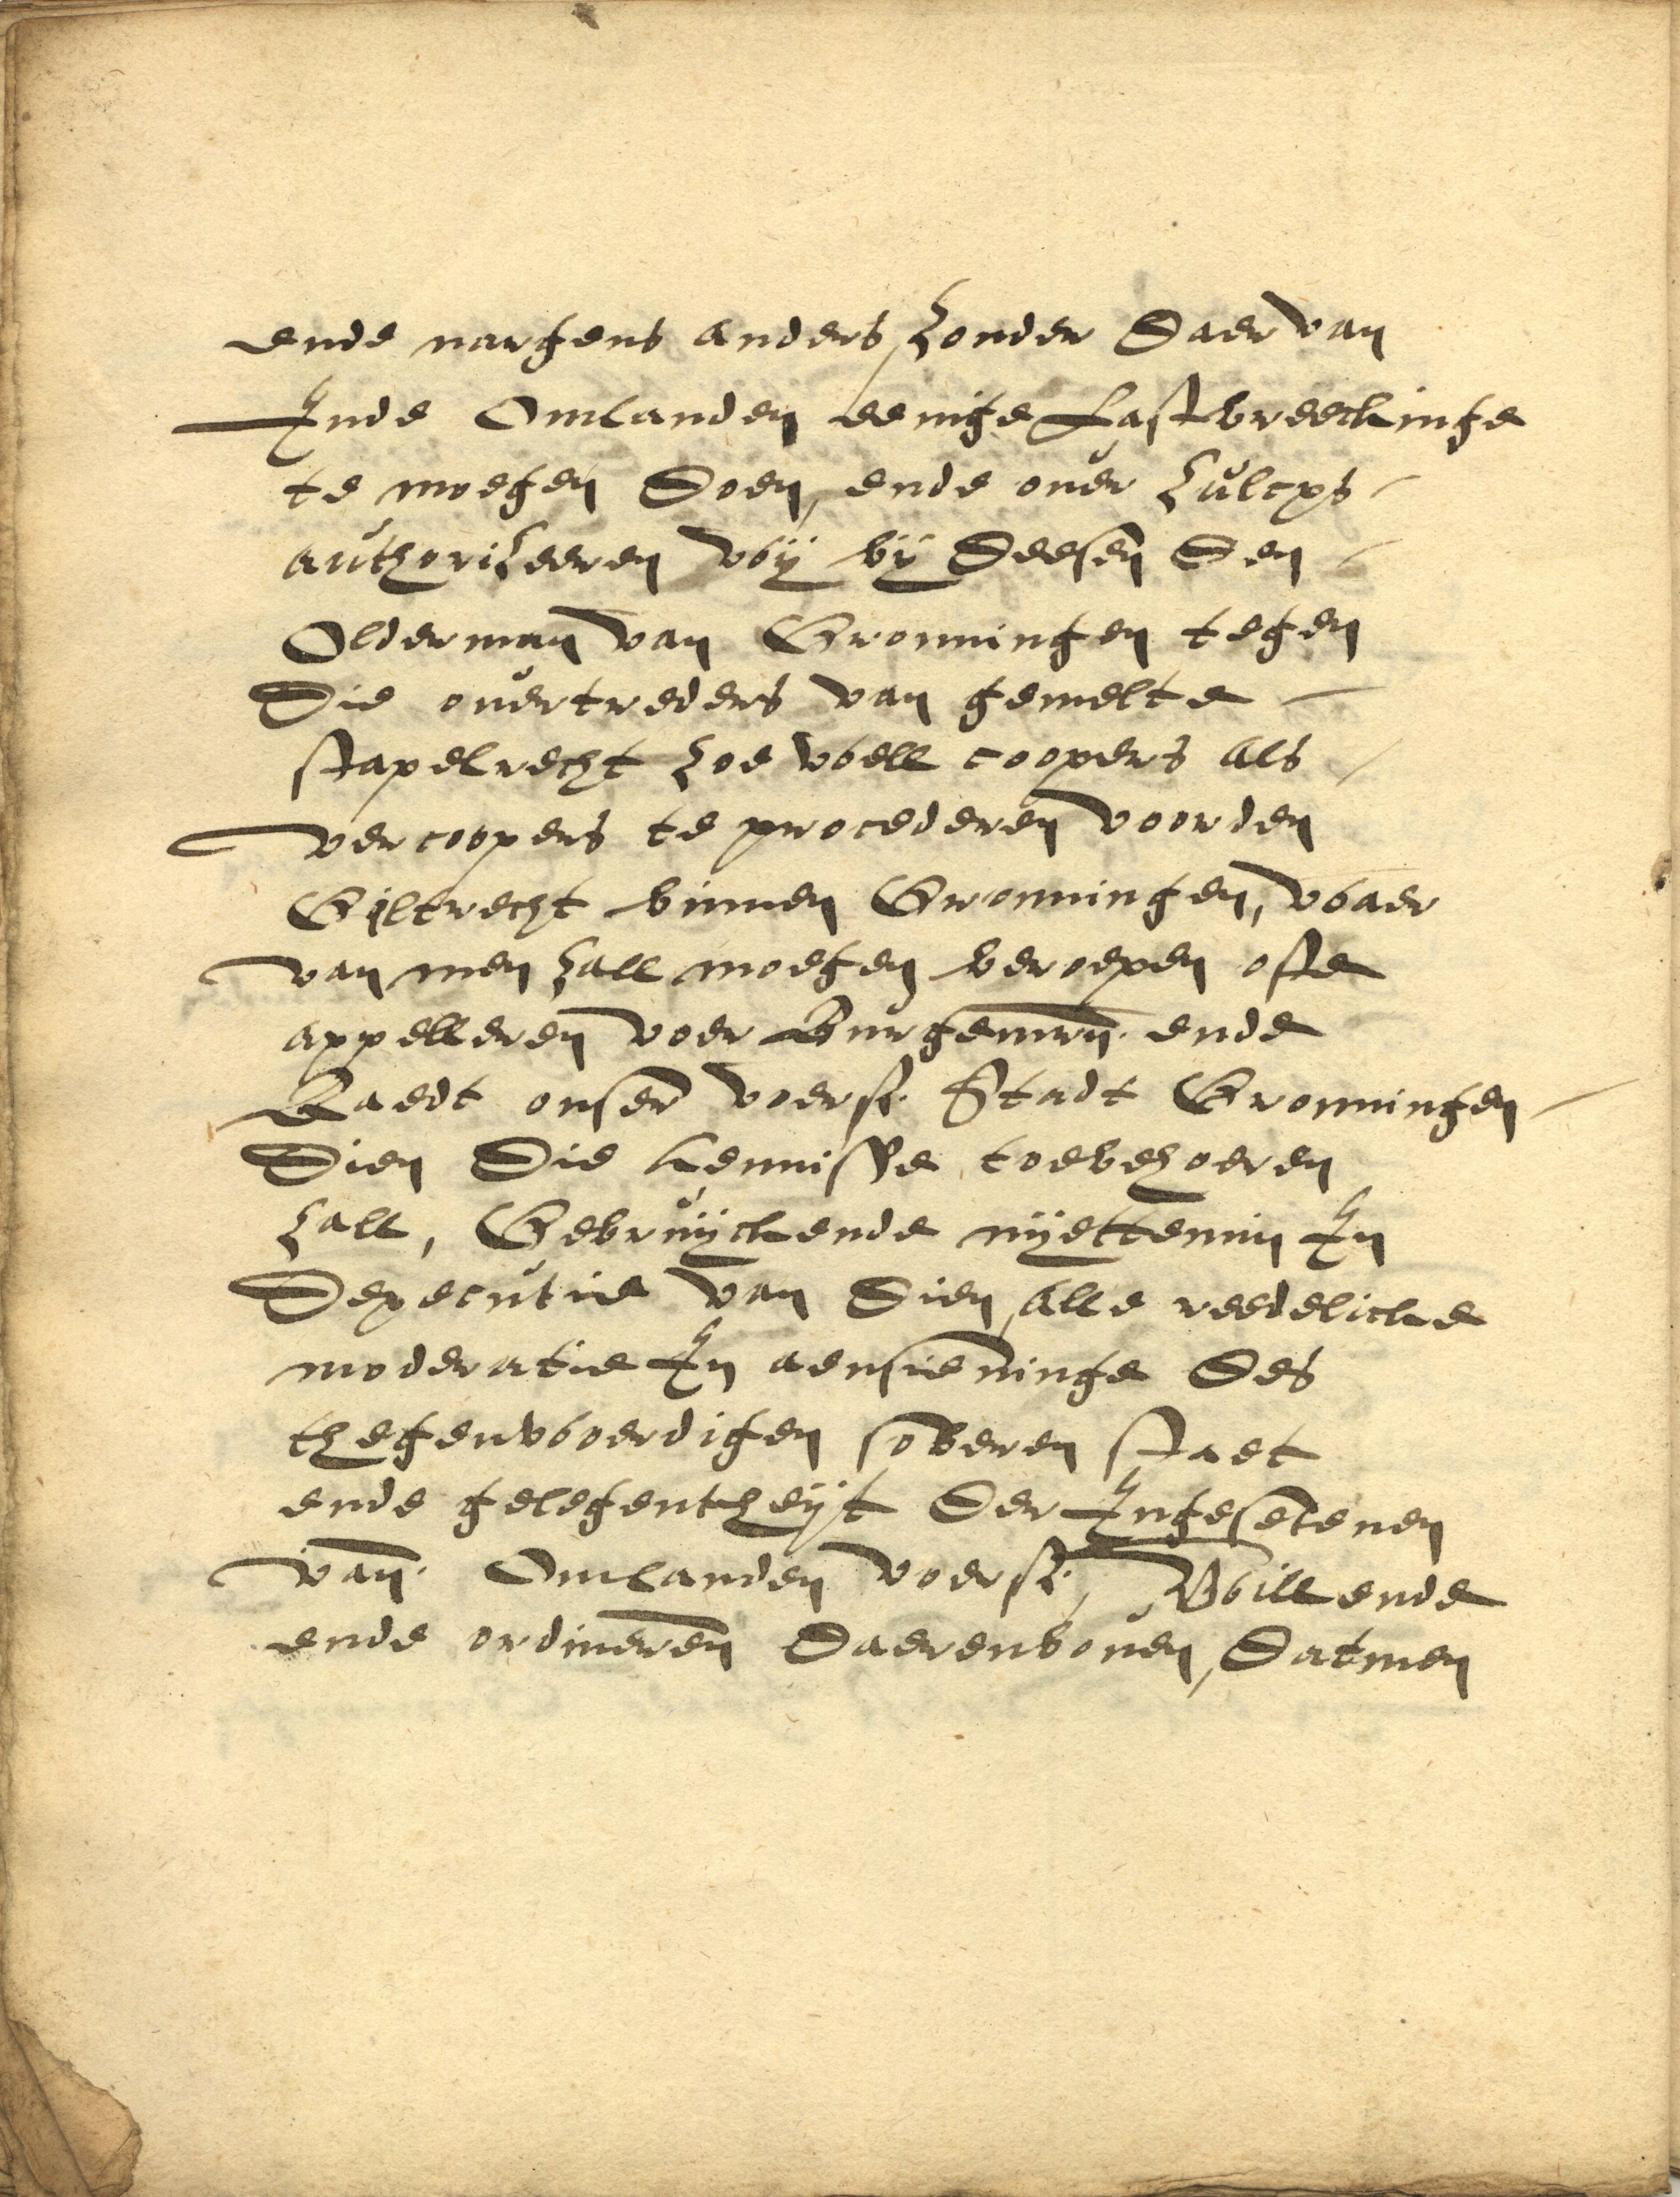 ende nargens anders, zonder daer van
Inde Omlanden eenige Lastbreeckinge
te moegen doen, ende ouer zulcxs
authorizeeren wÿ bÿ deesen den
Olderman van Gronningen tegen
die ouertreders van gemelte
stapelrecht zoe well coopers als
vercoopers te procederen voorden
Giltrecht binnen Gronningen, waer
van men zall moegen beroepen ofte
appelleren voer Burgemrn. ende
Raedt onser voersz. Stadt Gronningen
dien die kennisse toebehoeren
zall, Gebruÿckende nÿettemin In
dexecutie van dien, alle reedelicke
moderatie In aensieninge des
thegenwoerdigen soberen staet
ende gelegentheÿt der Ingesetenen
van Omlanden voersz., Willende
ende ordineren daerenbouen, datmen